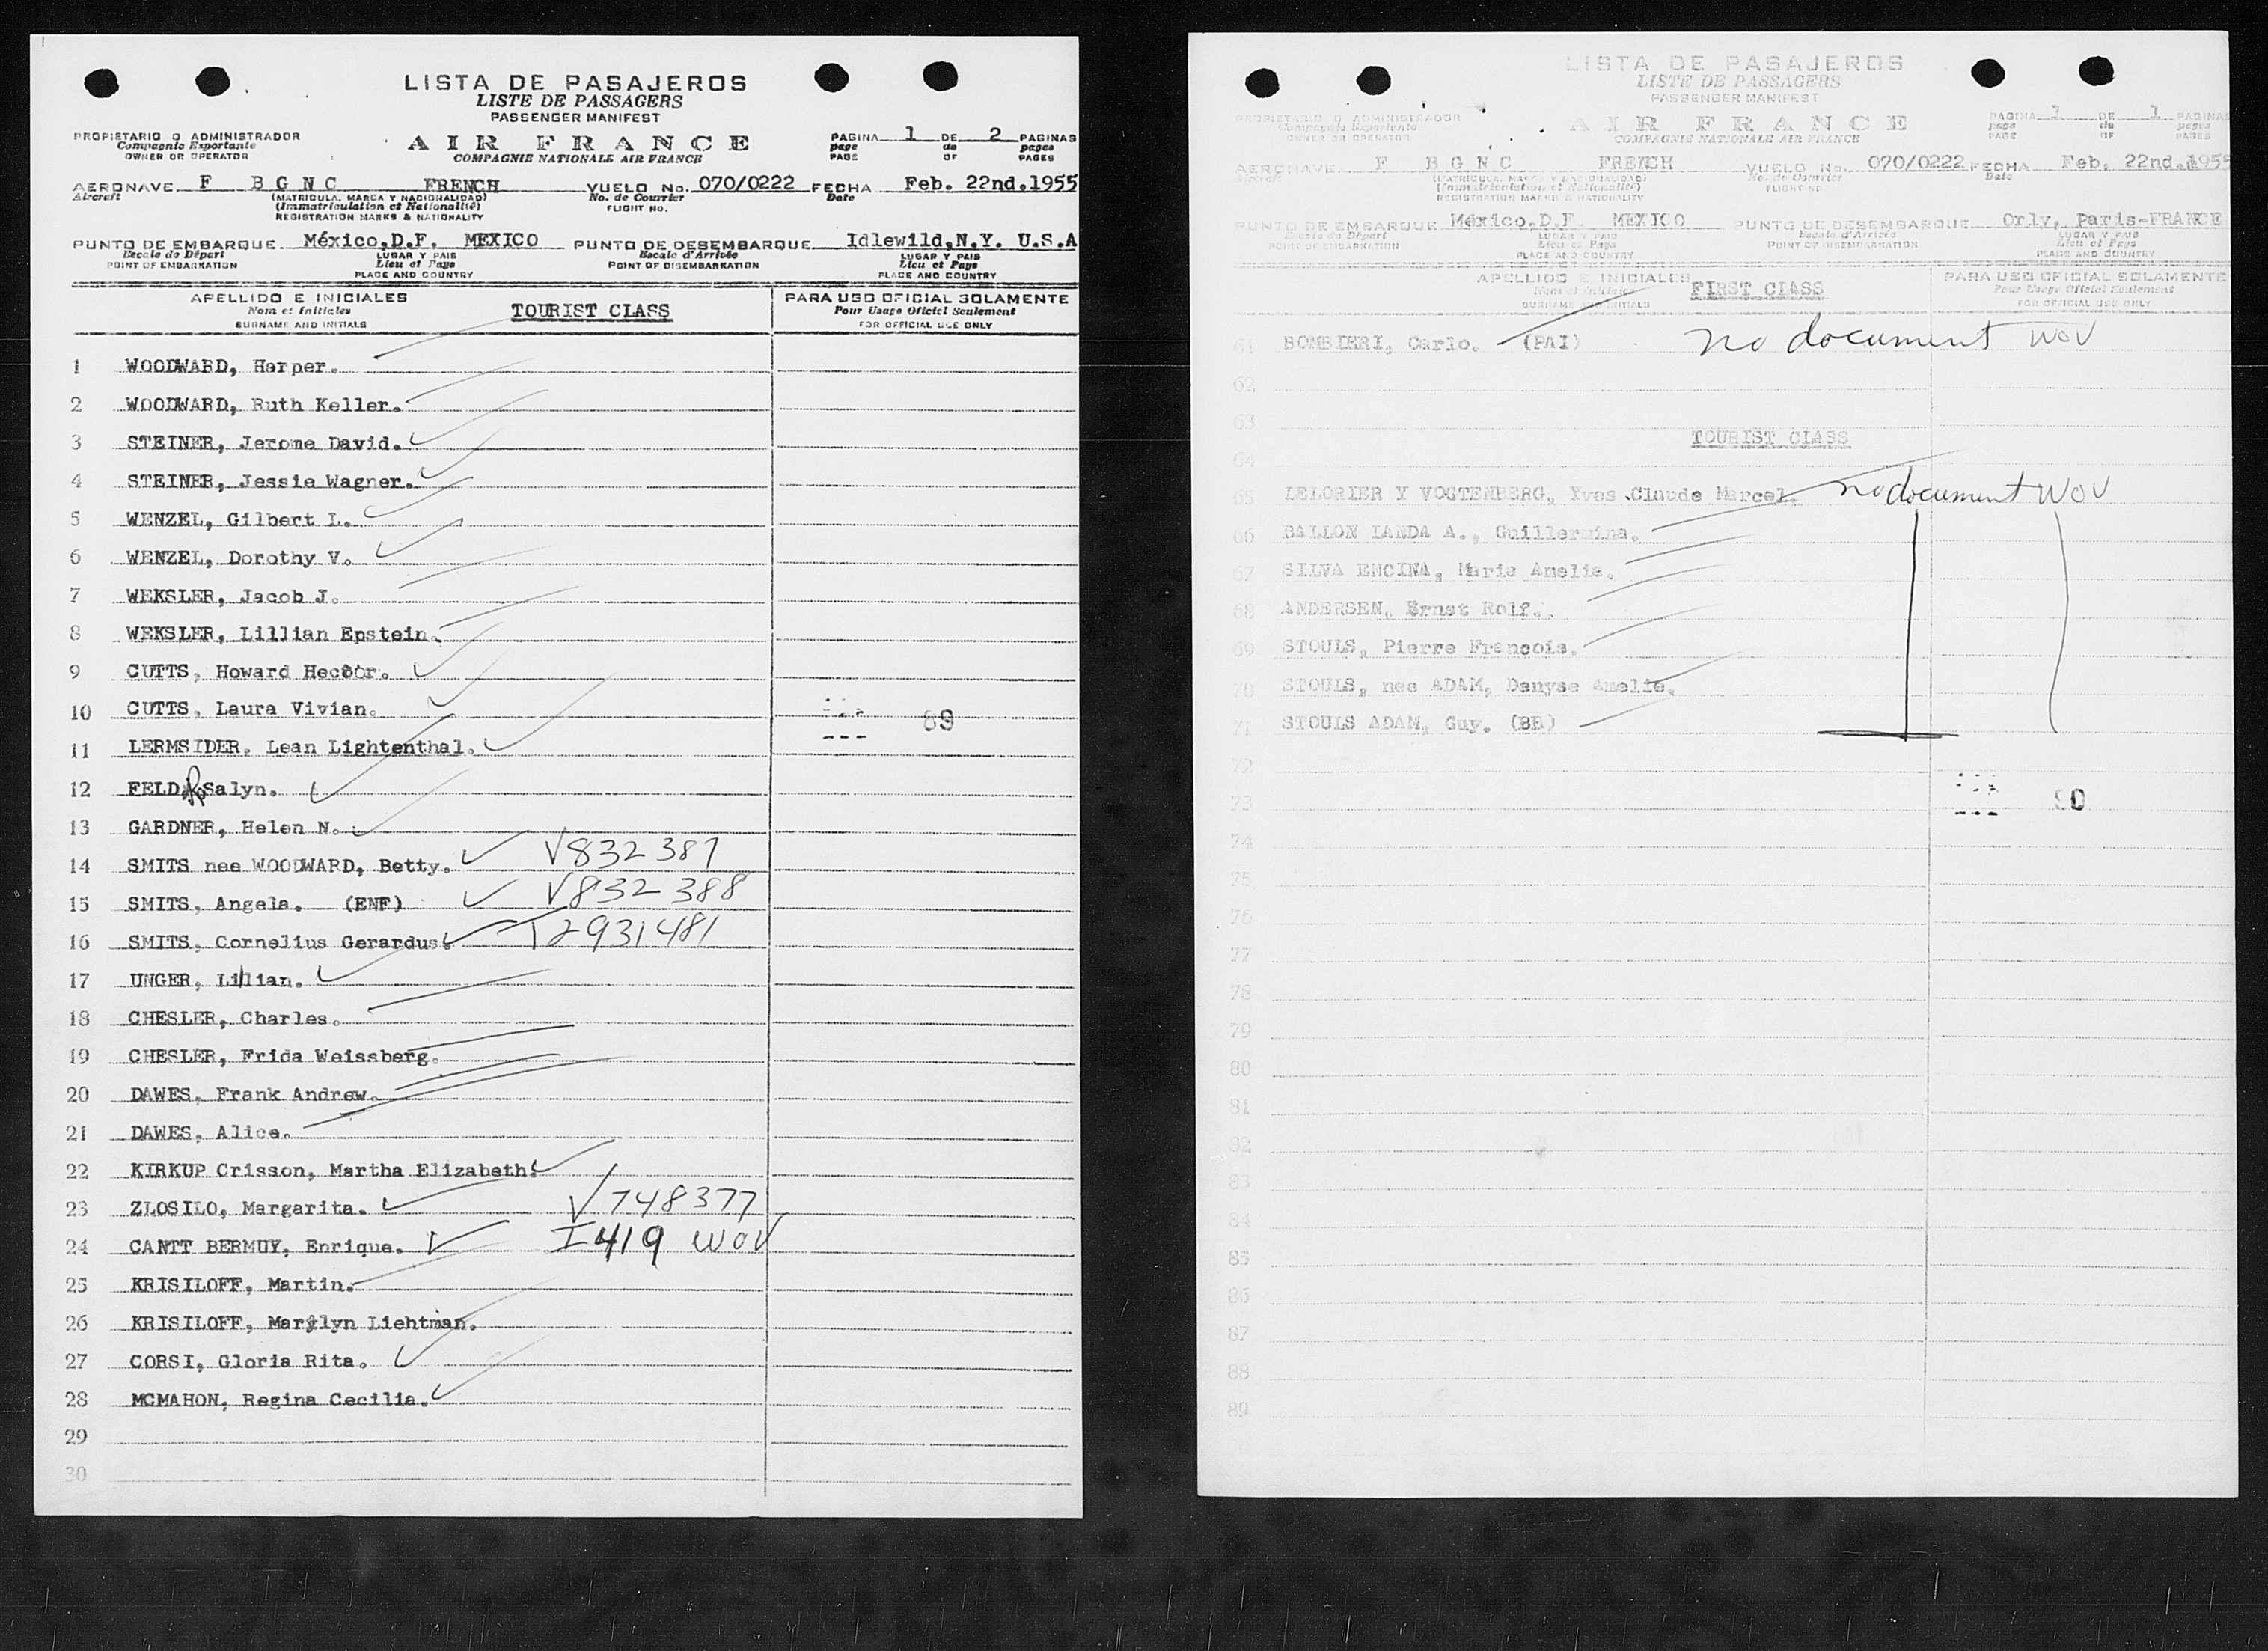 LISTA DE PASAJEROS
LISTE DE PASSAGERS
PASSENGER MANIFEST
PROPIETARIO O ADMINISTRADOR
Compagnie Exportante
OWNER OR OPERATOR
AIR FRANCE
COMPAGNIE NATIONALE AIR FRANCE
PAGINA 1 DE 2 PAGINAS
page de pages
PAGE OF PAGES
AERONAVE F BGNC FRENCH VUELO No. 070/0222 FECHA Feb. 22nd.1955
Aircraft (MATRICULA, MARCA Y NACIONALIDAD) No. de Courrier Date
(Immatriculation et Nationalité) FLIGHT NO.
REGISTRATION MARKS & NATIONALITY
PUNTO DE EMBARQUE México,D.F. MEXICO PUNTO DE DESEMBARQUE Idlewild,N.Y. U.S.A
Escale de Départ LUGAR Y PAIS Escale d'Arrivée LUGAR Y PAIS
POINT OF EMBARKATION Lieu et Pays POINT OF DISEMBARKATION Lieu et Pays
PLACE AND COUNTRY PLACE AND COUNTRY
APELLIDO E INICIALES TOURIST CLASS PARA USO OFICIAL SOLAMENTE
Nom et Initiales Pour Usage Officiel Seulement
SURNAME AND INITIALS FOR OFFICIAL USE ONLY
1 WOODWARD, Harper.
2 WOODWARD, Ruth Keller.
3 STEINER, Jerome David.
4 STEINER, Jessie Wagner.
5 WENZEL, Gilbert L.
6 WENZEL, Dorothy V.
7 WEKSLER, Jacob J.
8 WEKSLER, Lillian Epstein.
9 CUTTS, Howard Hector.
10 CUTTS, Laura Vivian. 89
11 LERMSIDER, Lean Lightenthal.
12 FELD, RoSalyn.
13 GARDNER, Helen N.
14 SMITS nee WOODWARD, Betty. V832 387
15 SMITS, Angela. (ENF) V832 388
16 SMITS, Cornelius Gerardus. T2931481
17 UNGER, Lillian.
18 CHESLER, Charles.
19 CHESLER, Frida Weissberg.
20 DAWES, Frank Andrew.
21 DAWES, Alice.
22 KIRKUP Crisson, Martha Elizabeth.
23 ZLOSILO, Margarita. V748377
24 CANTT BERMUY, Enrique. I419 WOV
25 KRISILOFF, Martin.
26 KRISILOFF, Marylyn Liehtman.
27 CORSI, Gloria Rita.
28 MCMAHON, Regina Cecilia.
29
30
LISTA DE PASAJEROS
LISTE DE PASSAGERS
PASSENGER MANIFEST
PROPIETARIO O ADMINISTRADOR
Compagnie Exportante
OWNER OR OPERATOR
AIR FRANCE
COMPAGNIE NATIONALE AIR FRANCE
PAGINA 1 DE 1 PAGINAS
page de pages
PAGE OF PAGES
AERONAVE F BGNC FRENCH VUELO No. 070/0222 FECHA Feb. 22nd.1955
Aircraft (MATRICULA, MARCA Y NACIONALIDAD) No. de Courrier Date
(Immatriculation et Nationalité) FLIGHT NO.
REGISTRATION MARKS & NATIONALITY
PUNTO DE EMBARQUE México,D.F. MEXICO PUNTO DE DESEMBARQUE Orly, Paris-FRANCE
Escale de Départ LUGAR Y PAIS Escale d'Arrivée LUGAR Y PAIS
POINT OF EMBARKATION Lieu et Pays POINT OF DISEMBARKATION Lieu et Pays
PLACE AND COUNTRY PLACE AND COUNTRY
APELLIDO E INICIALES FIRST CLASS PARA USO OFICIAL SOLAMENTE
Nom et Initiales Pour Usage Officiel Seulement
SURNAME AND INITIALS FOR OFFICIAL USE ONLY
61 BOMBIERI, Carlo. (PAI) no document WOV
62
63
TOURIST CLASS
64
65 LELORIER Y VOGTENBERG, Yves Claude Marcel. no document WOV
66 BALLON LANDA A., Guillermina.
67 SILVA ENCINA, Marie Amelie.
68 ANDERSEN, Ernst Rolf.
69 STOULS, Pierre Francois.
70 STOULS, nee ADAM, Denyse Amelie.
71 STOULS ADAM, Guy. (BB)
72
73 90
74
75
76
77
78
79
80
81
82
83
84
85
86
87
88
89